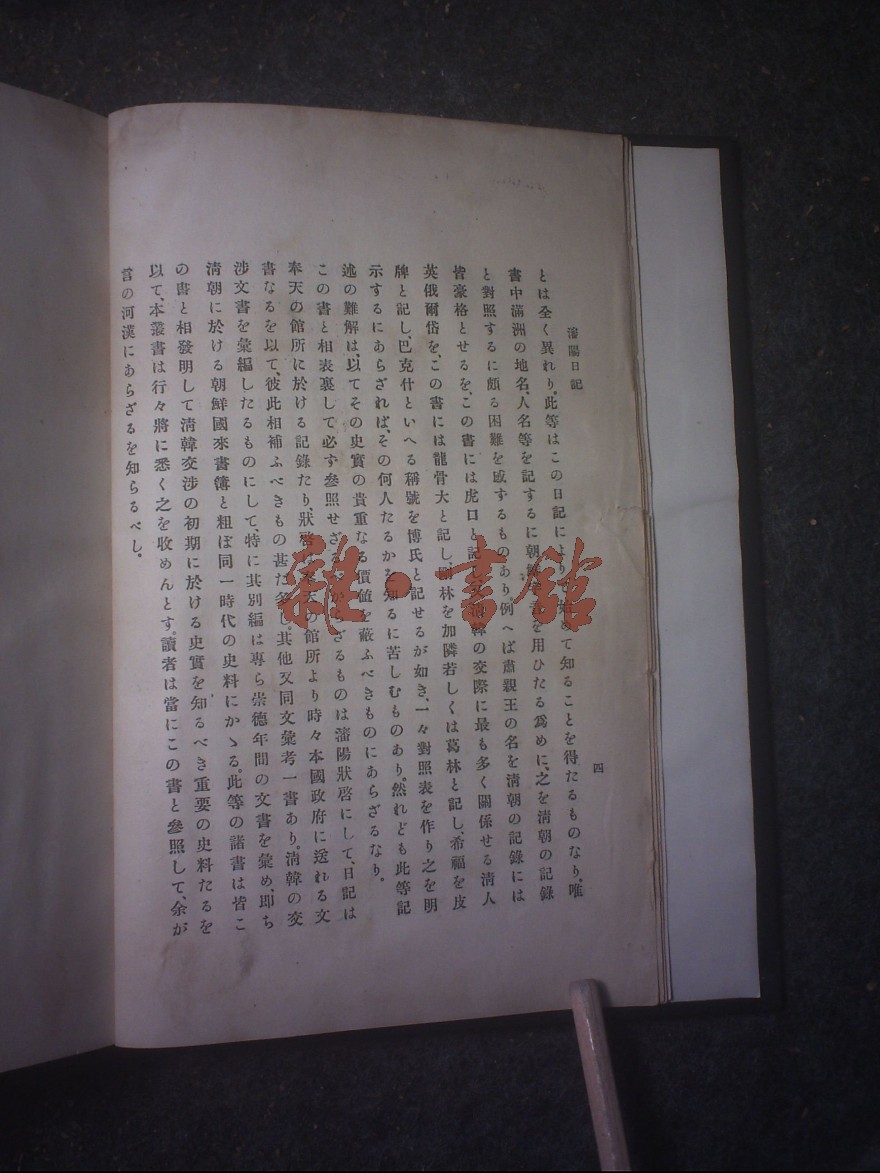 瀋陽日記
四
とは全く異れり、此等はこの日記によりて始めて知ることを得たるものなり、唯
書中滿洲の地名、人名等を記するに朝鮮を用ひたる爲めに、之を清朝の記錄
と對照するに頗る困難を感ずるものあり。例へば肅親王の名を清朝の記錄には
皆豪格とせるを、この書には虎口と記清韓の交際に最も多く關係せる清人
英俄爾岱を、この書には龍骨大と記し、剛林を加隣若しくは葛林と記し、希福を皮
牌と記し、巴克什といへる稱號を博氏と記せるが如き、一々對照表を作り之を明
示するにあらざれば、その何人たるかを知るに苦しむものあり。然れども此等記
述の難解は、以てその史實の貴重なる價値を蔽ふべきものにあらざるなり。
この書と相表裏して必ず參照せざるべからざるものは瀋陽狀啓にして、日記は
奉天の館所に於ける記錄たり、狀啓は奉天の館所より時々本國政府に送れる文
書なるを以て、彼此相補ふべきもの甚だ多し。其他又同文彙考一書あり。清韓の交
涉文書を彙編したるものにして、特に其別編は專ら崇德年間の文書を彙め、即ち
清朝に於ける朝鮮國來書簿と粗ぼ同一時代の史料にかゝる。此等の諸書は皆こ
の書と相發明して清韓交涉の初期に於ける史實を知るべき重要の史料たるを
以て、本叢書は行々將に悉く之を收めんとす。讀者は當にこの書と參照して、余が
言の河漢にあらざるを知らるべし。
雜·書館